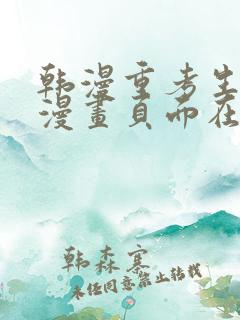 韩漫重考生
漫畫頁而在
韩森寨
未经同意禁止转载